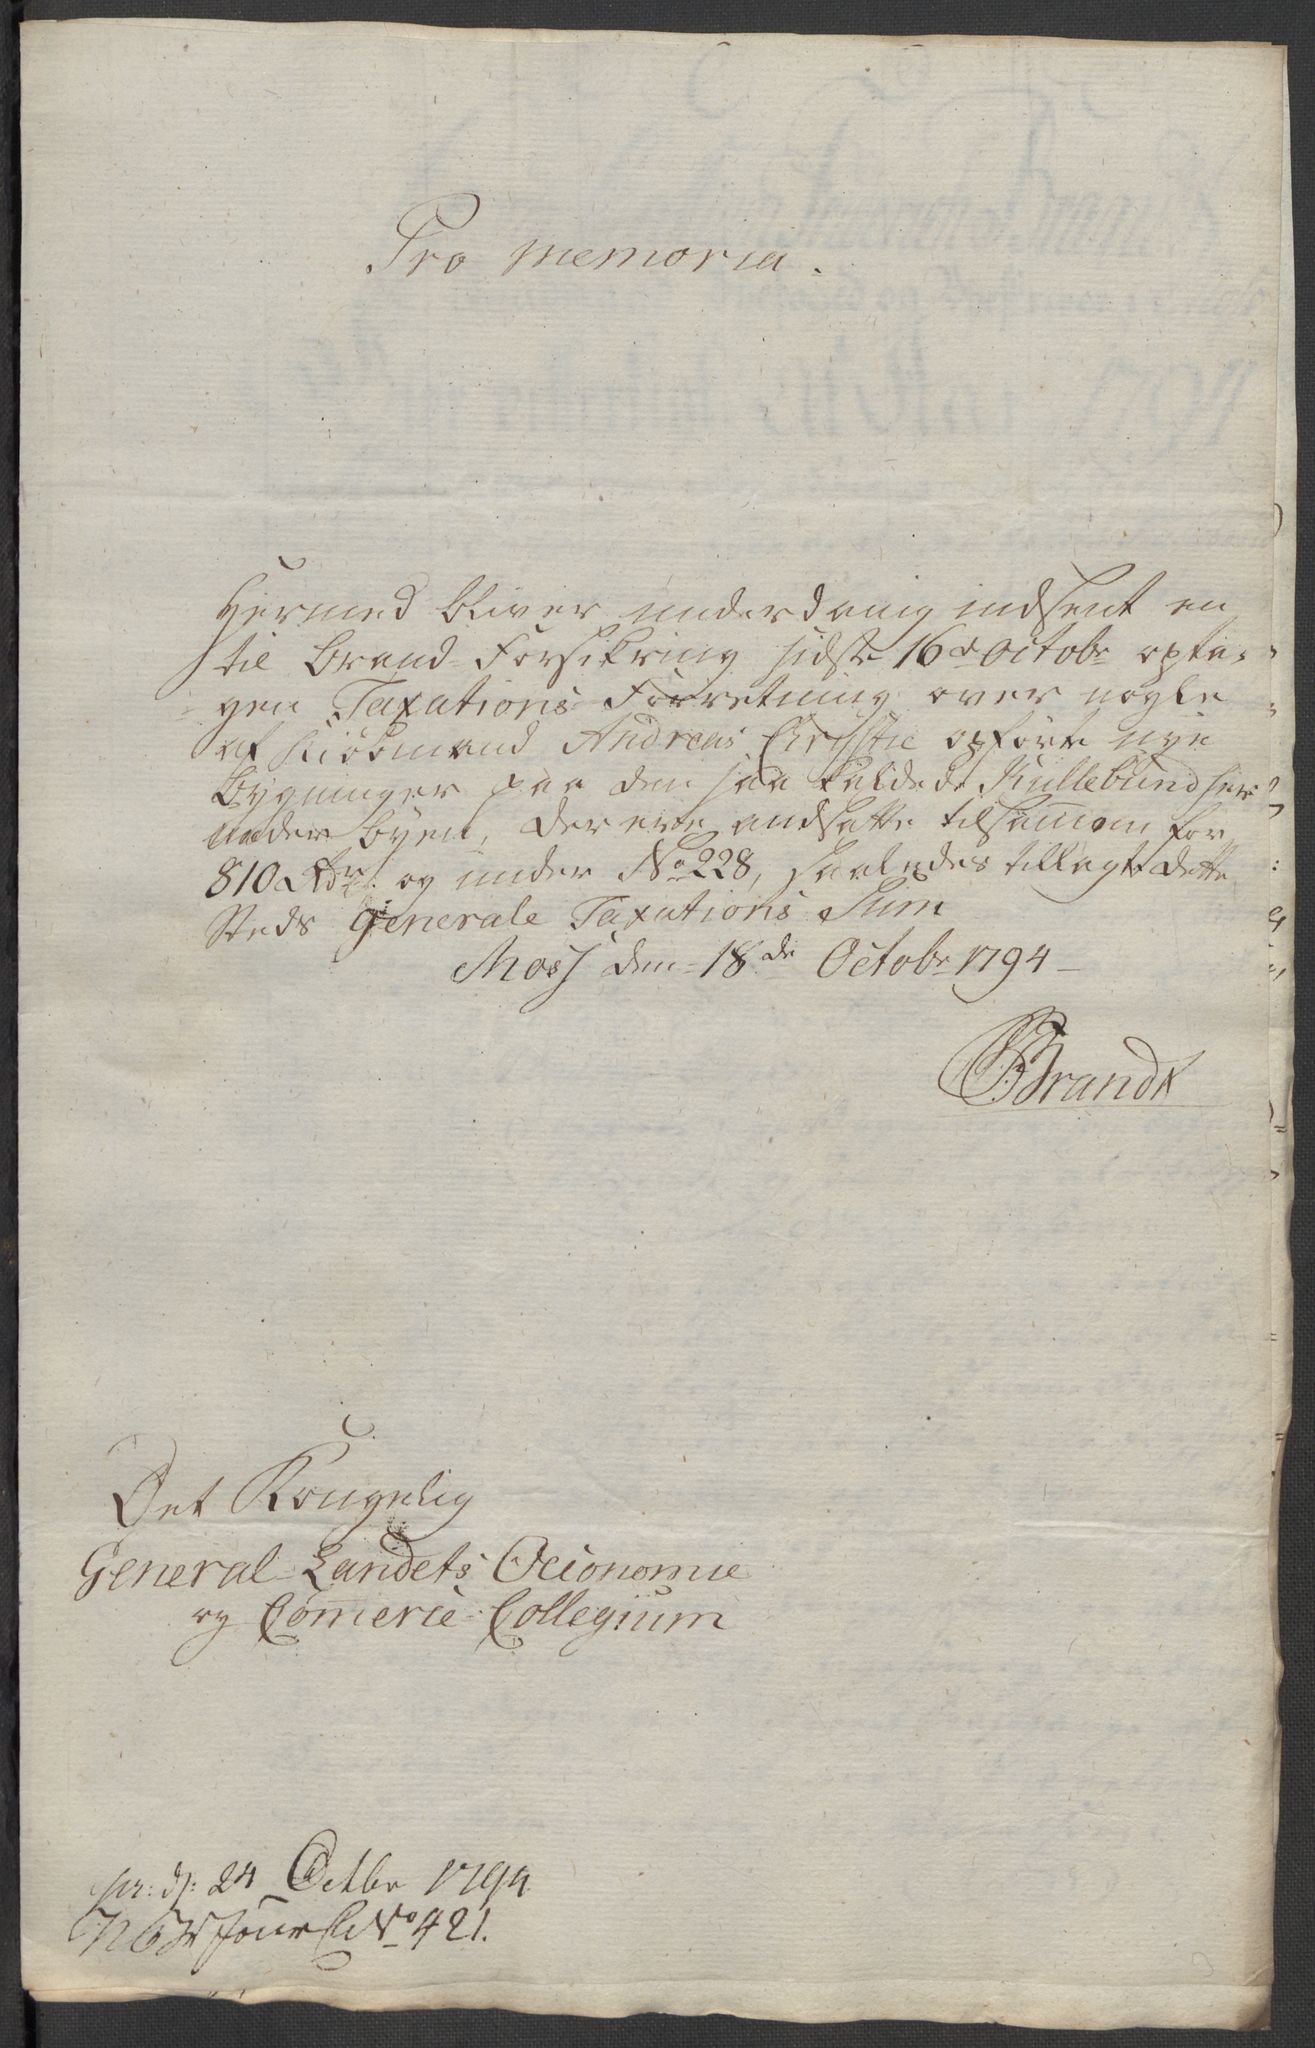 Pro memoria.
Hermed bliver underdanig indsent en
til Brand-Forsikring sidste 16de Octobr opta-
gen Taxations Forretning over nogle
af Kiöbmand Andreas Chrystie opförte nye
Bygninger paa den saa kaldede Kullebund her
under Byen, der ere andsatte tilsam̄en for
810 Rdr og under No 228, saaledes tillagt dette
Steds Generale Taxations Sum
Moss den 18de Octobr 1794
Brandt
Det Kongelig
General-Landets Oeconomie
og Com̄erce-Collegium
pr: d: 24 Octbr 1794
Jour No 421.